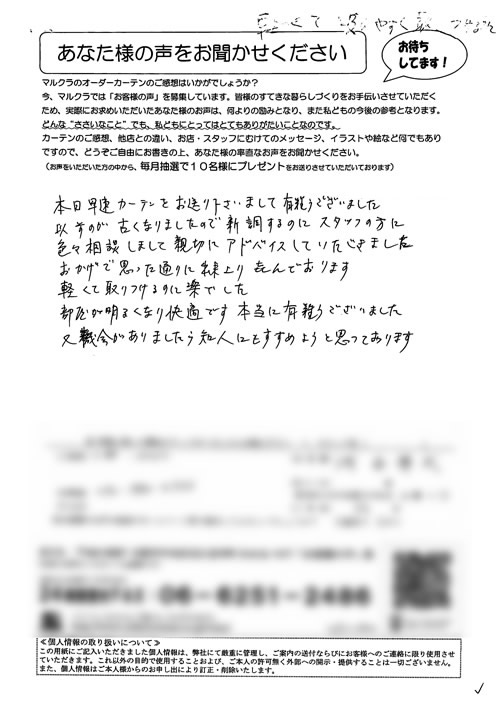 軽くて
あなた様の声をお聞かせください
お待ち
してます！
マルクラのオーダーカーテンのご感想はいかがでしょうか？
今、マルクラでは「お客様の声」を募集しています。皆様のすてきな暮らしづくりをお手伝いさせていただく
ため、実際にお求めいただいたあなた様のお声は、何よりの励みとなり、また私どもの今後の参考となります。
どんな“ささいなこと”でも、私どもにとってはとてもありがたいことなのです。
カーテンのご感想、他店との違い、お店・スタッフにむけてのメッセージ、イラストや絵など何でもあり
ですので、どうぞご自由にお書きの上、あなた様の率直なお声をお聞かせください。
（お声をいただいた方の中から、毎月抽選で１０名様にプレゼントをお送りさせていただいております）
本日早速カーテンをお送り下さいまして有難うございました
以前のが古くなりましたので新調するのにスタッフの方に
色々相談しまして親切にアドバイスしていただきました
おかげで思った通りに仕上り喜んでおります
軽くて取りつけるのに楽でした
部屋が明るくなり快適です 本当に有難うございました
又機会がありましたら知人にもすすめようと思っております
06-6251-2486
≪個人情報の取り扱いについて≫
この用紙にご記入いただきました個人情報は、弊社にて厳重に管理し、ご案内の送付ならびにお客様へのご連絡に限り使用させ
ていただきます。これ以外の目的で使用することおよび、ご本人の許可無く外部への開示・提供することは一切ございません。
また、個人情報はご本人様からのお申し出により訂正・削除いたします。